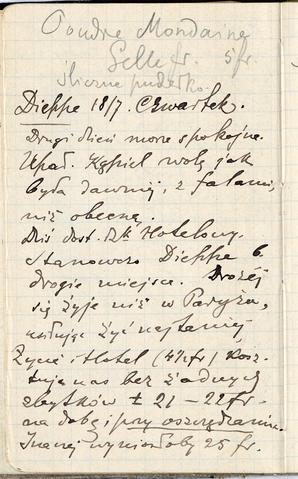 Poudre Mondaine
Gellé fr. 5 fr.
śliczne pudełko.
Dieppe 18/7. Czwartek.
Drugi dzień morze spokojne.
Upał. Kąpiel wolę jak
była dawniej, z falami,
niż obecną.
Dziś dost. rk Hotelowy.
Stanowczo Dieppe b.
drogie miejsce. Drożej
się żyje niż w Paryżu,
usiłując żyć najtaniej
Życie i Hotel (47 fr) kosz-
tuje nas bez żadnych
zbytków ± 21 – 22 fr.
na dobę i przy oszczędzaniu.
Inaczej wyniosłoby 25 fr.